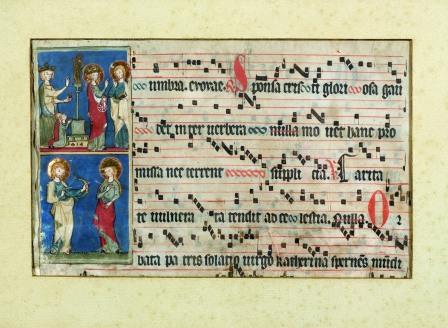 umbra. evovae. Sponsa cristi glori osa gau
det in per verbera nulla mo uet hanc pro
missa nec terrent suppli cia. V Carita
te uulnera ta tendit ad ce lestia. Nulla. O2
bata pa tris solatio uirgo katherina spernens mūdi